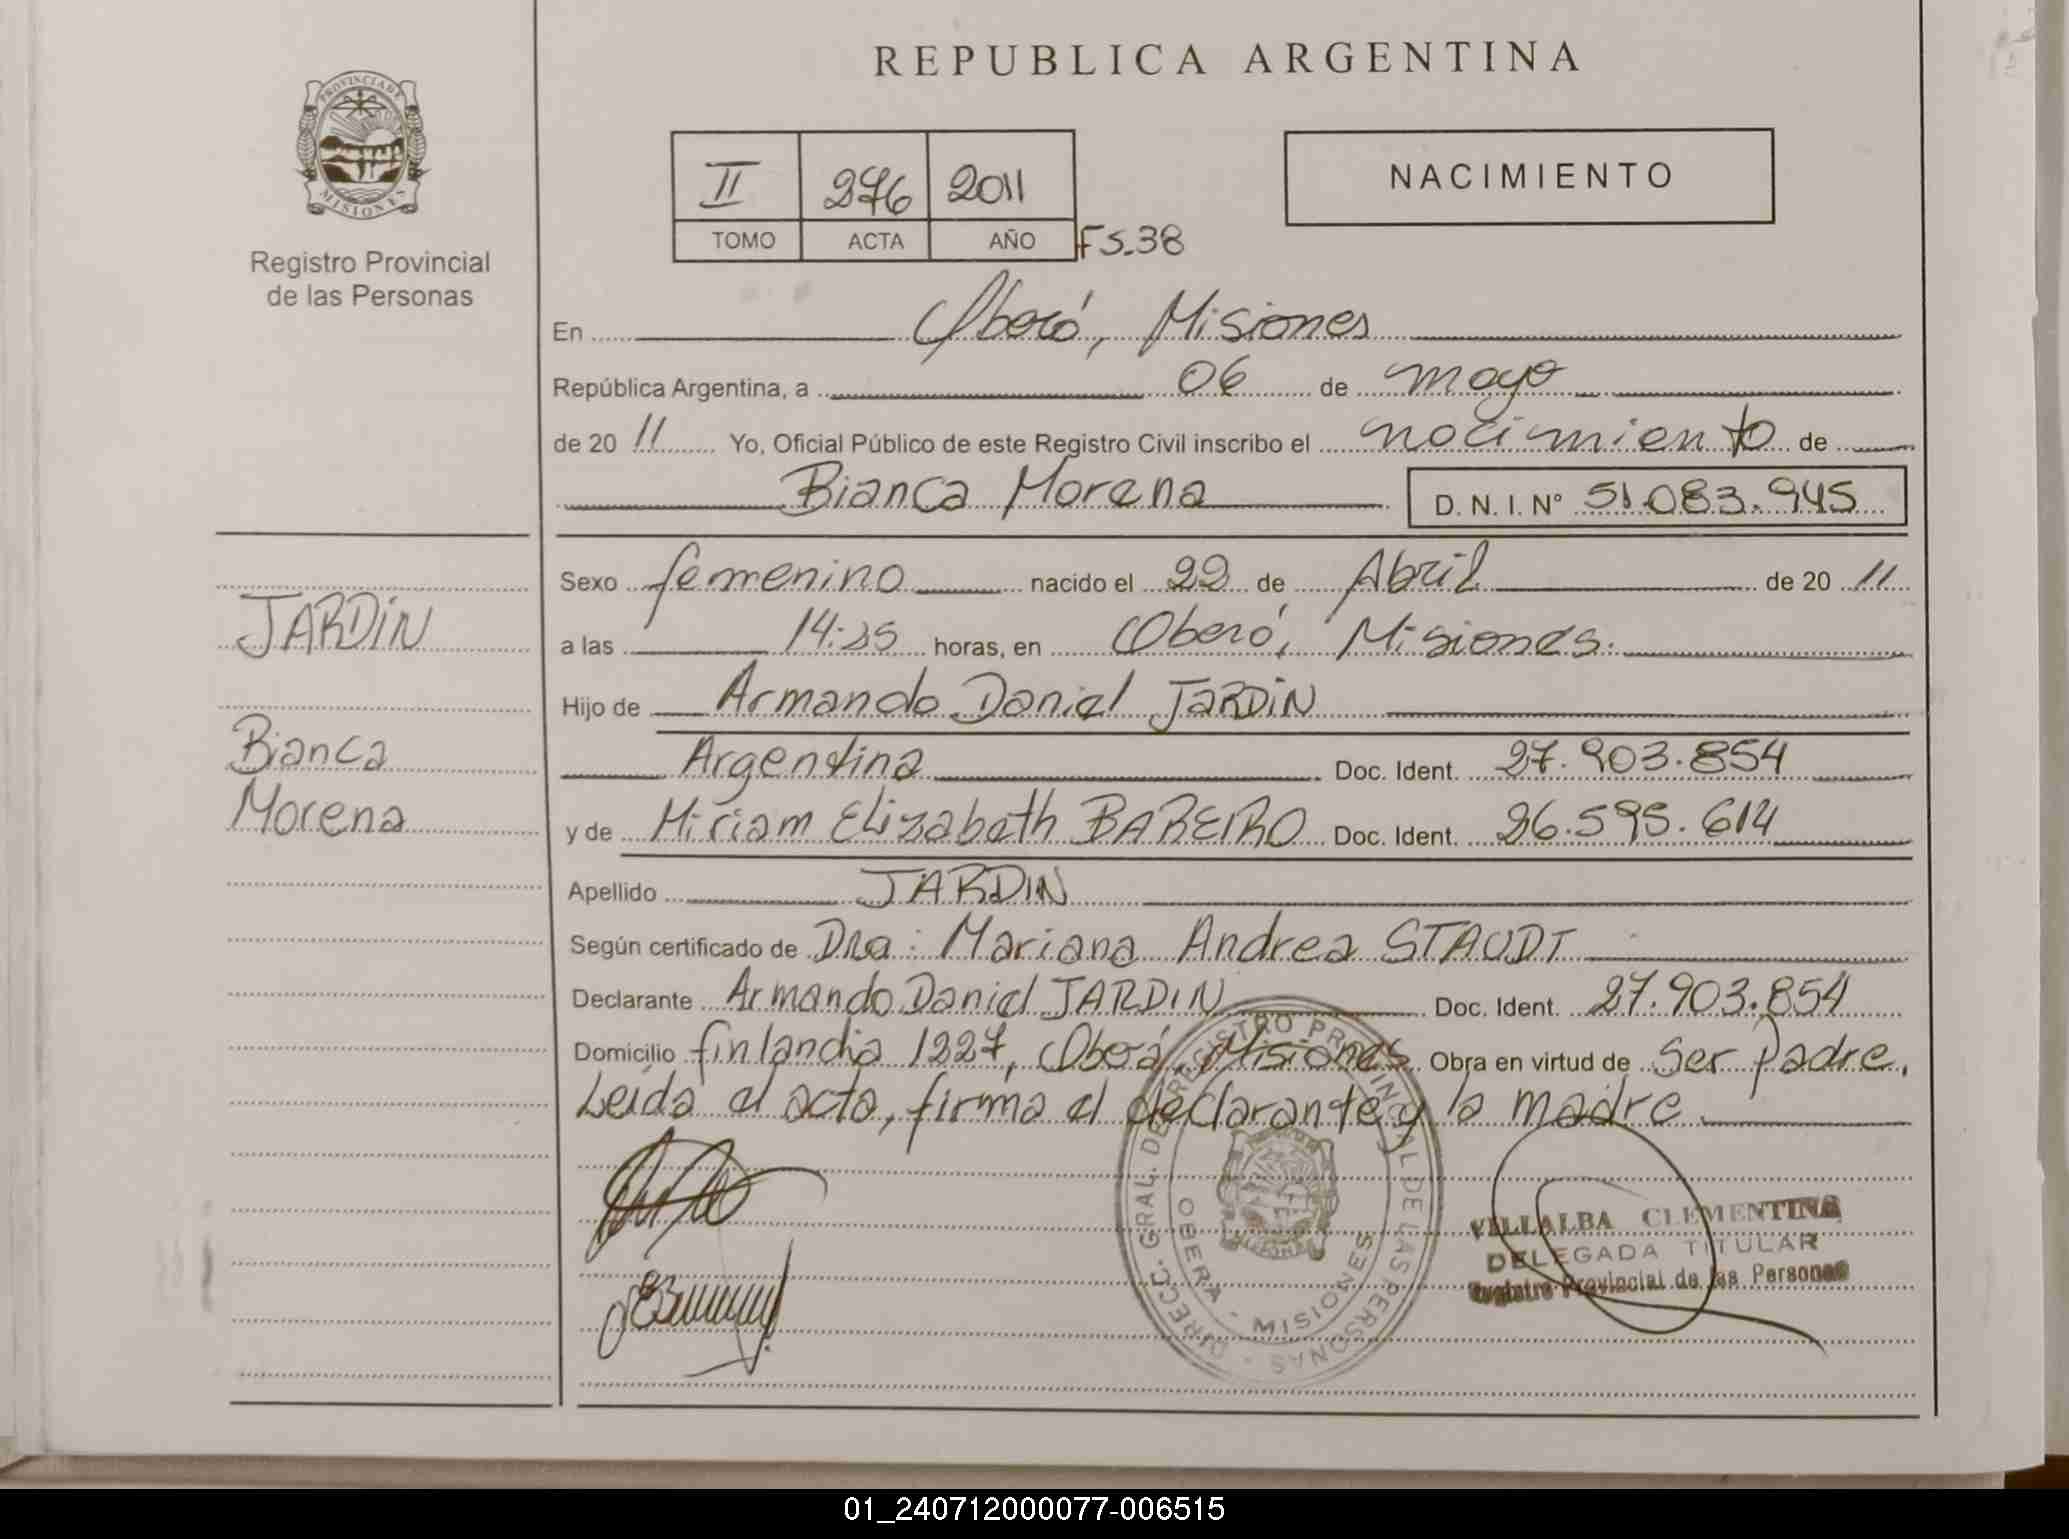 REPUBLICA ARGENTINA
PROVINCIA DE
MISIONES
Registro Provincial
de las Personas
II 276 2011
TOMO ACTA AÑO FS.38
NACIMIENTO
En Oberá, Misiones
República Argentina, a 06 de mayo
de 20 11 Yo, Oficial Público de este Registro Civil inscribo el nacimiento de
Bianca Morena D. N. I. N° 51.083.945
JARDIN
Bianca
Morena
Sexo femenino nacido el 22 de Abril de 20 11
a las 14:25 horas, en Oberá, Misiones.
Hijo de Armando Daniel JARDIN
Argentina Doc. Ident. 27.903.854
y de Miriam Elizabeth BAREIRO Doc. Ident. 26.595.614
Apellido JARDIN
Según certificado de Dra: Mariana Andrea STAUDT
Declarante Armando Daniel JARDIN Doc. Ident. 27.903.854
Domicilio finlandia 1227, Oberá, Misiones Obra en virtud de Ser Padre,
Leída el acta, firma el declarante y la madre
DIRECC. GRAL. DE REGISTRO PROVINCIAL DE LAS PERSONAS
OBERA - MISIONES
VILLALBA CLEMENTINA
DELEGADA TITULAR
Registro Provincial de las Personas
01_240712000077-006515